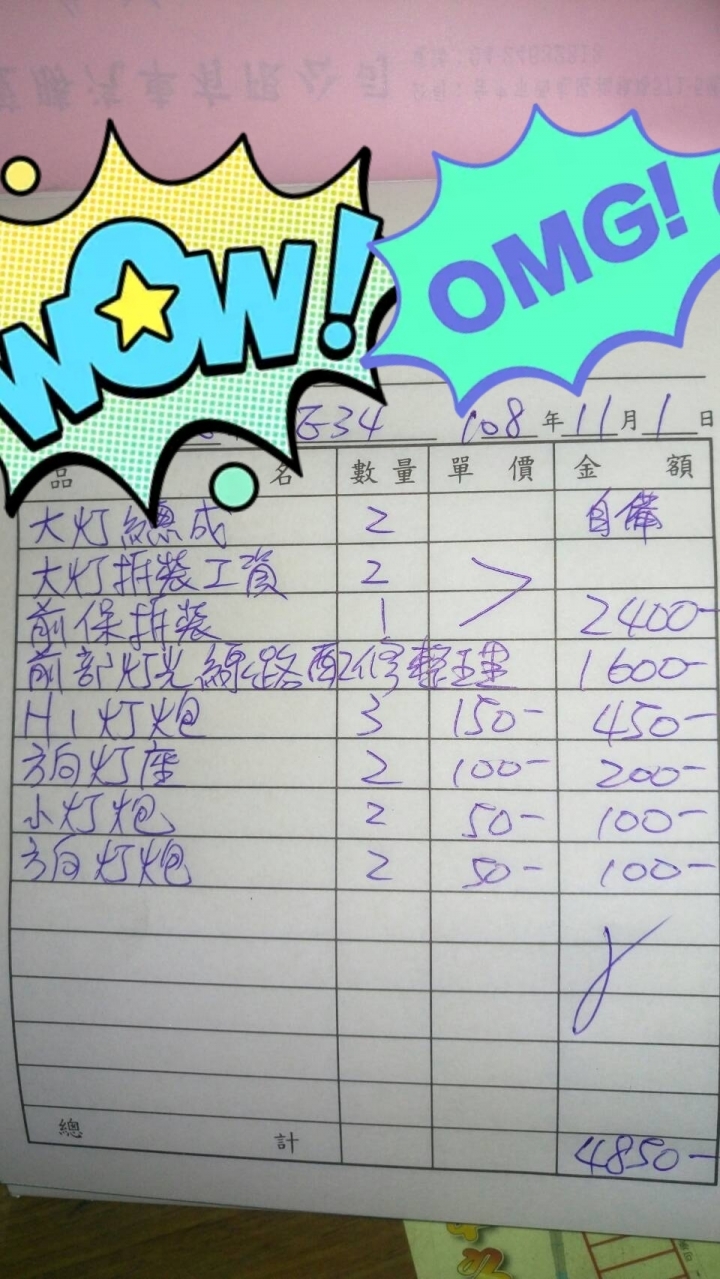 汽車有限公司
WOW!
OMG!
E34 108年11月1日
品名 數量 單價 金額
大灯總成 2 自備
大灯拆裝工資 2
前保拆裝 1 2400-
前部灯光線路配修整理 1600-
H1灯炮 3 150- 450-
方向灯座 2 100- 200-
小灯炮 2 50- 100-
方向灯炮 2 50- 100-
總計 4850-